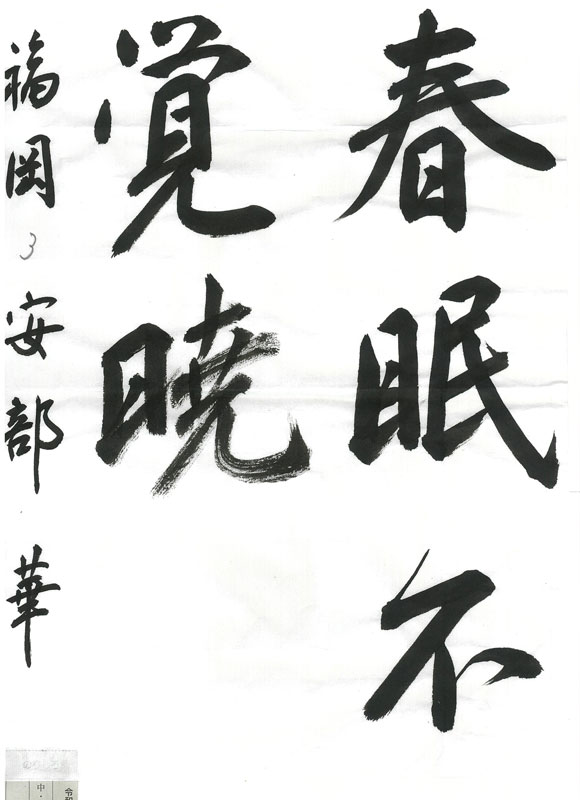 春眠不
覚暁
福岡 3 安部 華
令和
中・